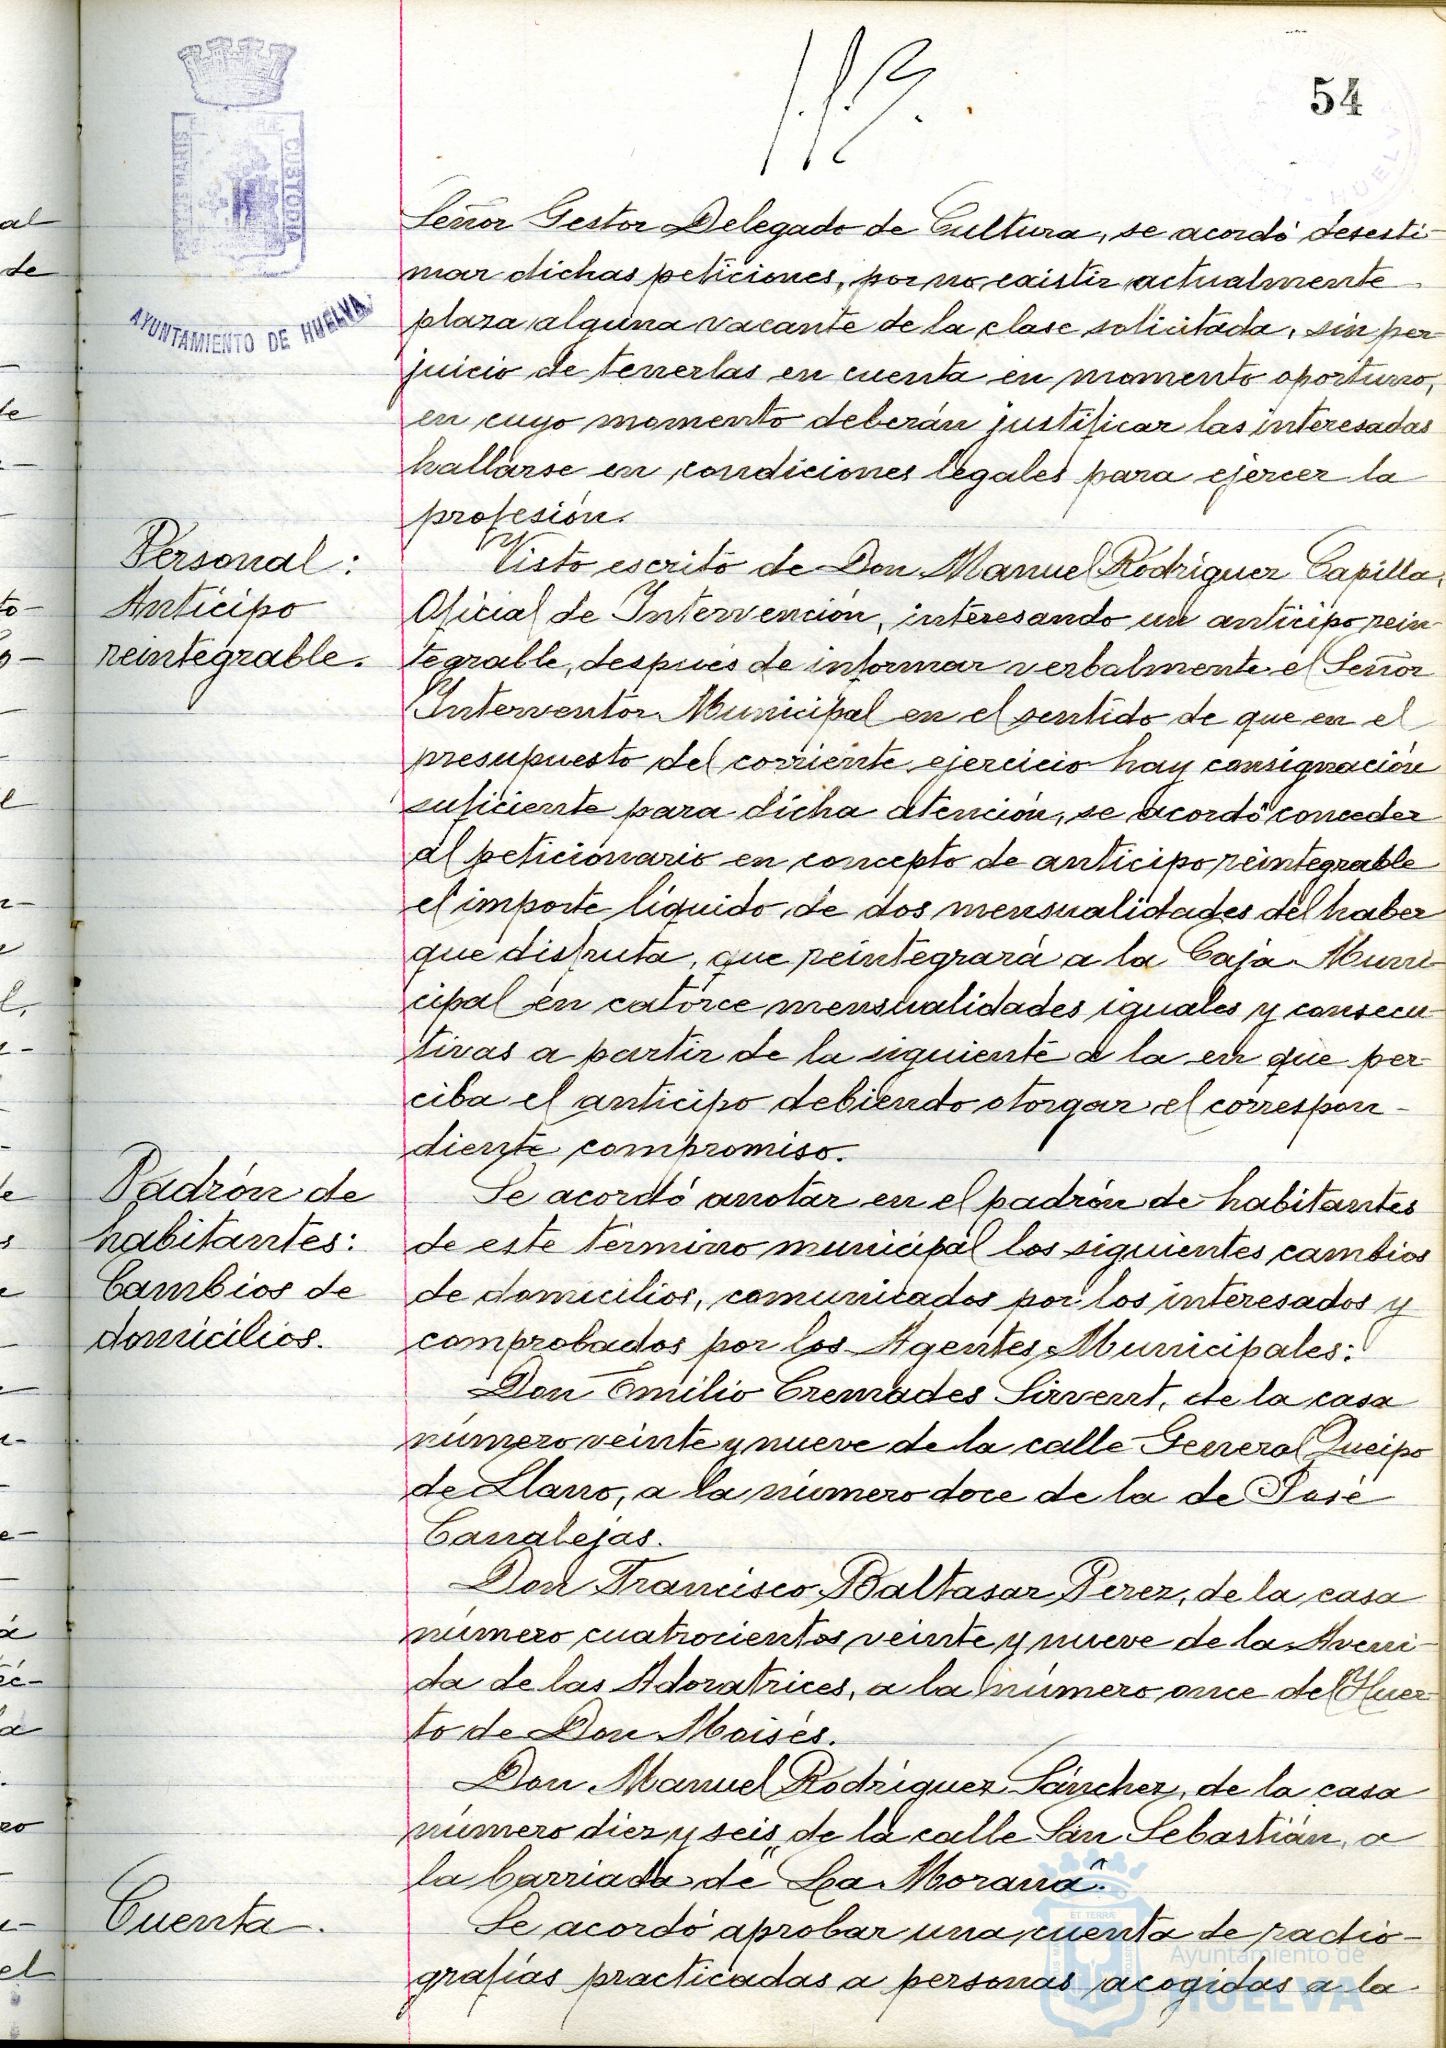 54
AYUNTAMIENTO DE HUELVA
CUSTODIA
Señor Gestor Delegado de Cultura, se acordó desesti-
mar dichas peticiones, por no existir actualmente
plaza alguna vacante de la clase solicitada, sin per-
juicio de tenerlas en cuenta en momento oportuno,
en cuyo momento deberán justificar las interesadas
hallarse en condiciones legales para ejercer la
profesión.
Personal:
Anticipo
reintegrable.
Visto escrito de Don Manuel Rodríguez Capilla,
Oficial de Intervención, interesando un anticipo rein-
tegrable, después de informar verbalmente el Señor
Interventor Municipal en el sentido de que en el
presupuesto del corriente ejercicio hay consignación
suficiente para dicha atención, se acordó conceder
al peticionario en concepto de anticipo reintegrable
el importe líquido de dos mensualidades del haber
que disfruta, que reintegrará a la Caja Muni-
cipal en catorce mensualidades iguales y consecu-
tivas a partir de la siguiente a la en que per-
ciba el anticipo debiendo otorgar el correspon-
diente compromiso.
Padrón de
habitantes:
Cambios de
domicilios.
Se acordó anotar en el padrón de habitantes
de este término municipal los siguientes cambios
de domicilios, comunicados por los interesados y
comprobados por los Agentes Municipales:
Don Emilio Cremades Sirvent, de la casa
número veinte y nueve de la calle General Queipo
de Llano, a la número doce de la de José
Canalejas.
Don Francisco Baltasar Perez, de la casa
número cuatrocientos veinte y nueve de la Aveni-
da de las Adoratrices, a la número once del Huer-
to de Don Moisés.
Don Manuel Rodríguez Sánchez, de la casa
número diez y seis de la calle San Sebastián, a
la barriada de "La Morana".
Cuenta.
Se acordó aprobar una cuenta de radio-
grafías practicadas a personas acogidas a la
Ayuntamiento de
HUELVA